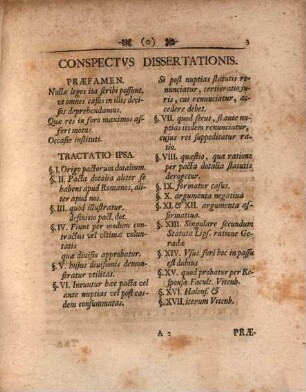 (o)
3
CONSPECTVS DISSERTATIONIS.
PRÆFAMEN.
Nullæ leges ita scribi possunt,
vt omnes casus in illis deci-
si deprehendamus.
Quæ res in foro maximos af-
fert motus.
Occasio instituti.
TRACTATIO IPSA.
§. I. Origo pactorum dotalium.
§. II. Pacta dotalia aliter se
habent apud Romanos, ali-
ter apud nos.
§. III. quod illustratur.
definitio pact. dot.
§. IV. Fiunt per modum con-
tractus vel vltimæ volun-
tatis
quæ diuisio approbatur.
§. V. huius diuisionis demon-
stratur vtilitas.
§. VI. Ineuntur hæc pacta vel
ante nuptias vel post eas-
dem consummatas.
Si post nuptias statutis re-
nunciatur, certioratio iu-
ris, cui renunciatur, ac-
cedere debet.
§. VII. quod secus, si ante nu-
ptias iisdem renunciatur,
cuius rei suppeditatur ra-
tio.
§. VIII. quæstio, qua ratione
per pacta dotalia statutis
derogetur.
§. IX. formatur casus.
§. X. argumenta negatiua
§. XI. & XII. argumenta af-
firmatiua.
§. XIII. Singulare secundum
Statuta Lips. ratione Ge-
radæ
§. XIV. Vsus fori hoc in passu
est dubius
§. XV. quod probatur per Re-
sponsa Facult. Vitenb.
§. XVI. Halens. &
§. XVII, iterum Vitenb.
A 2
PRÆ-